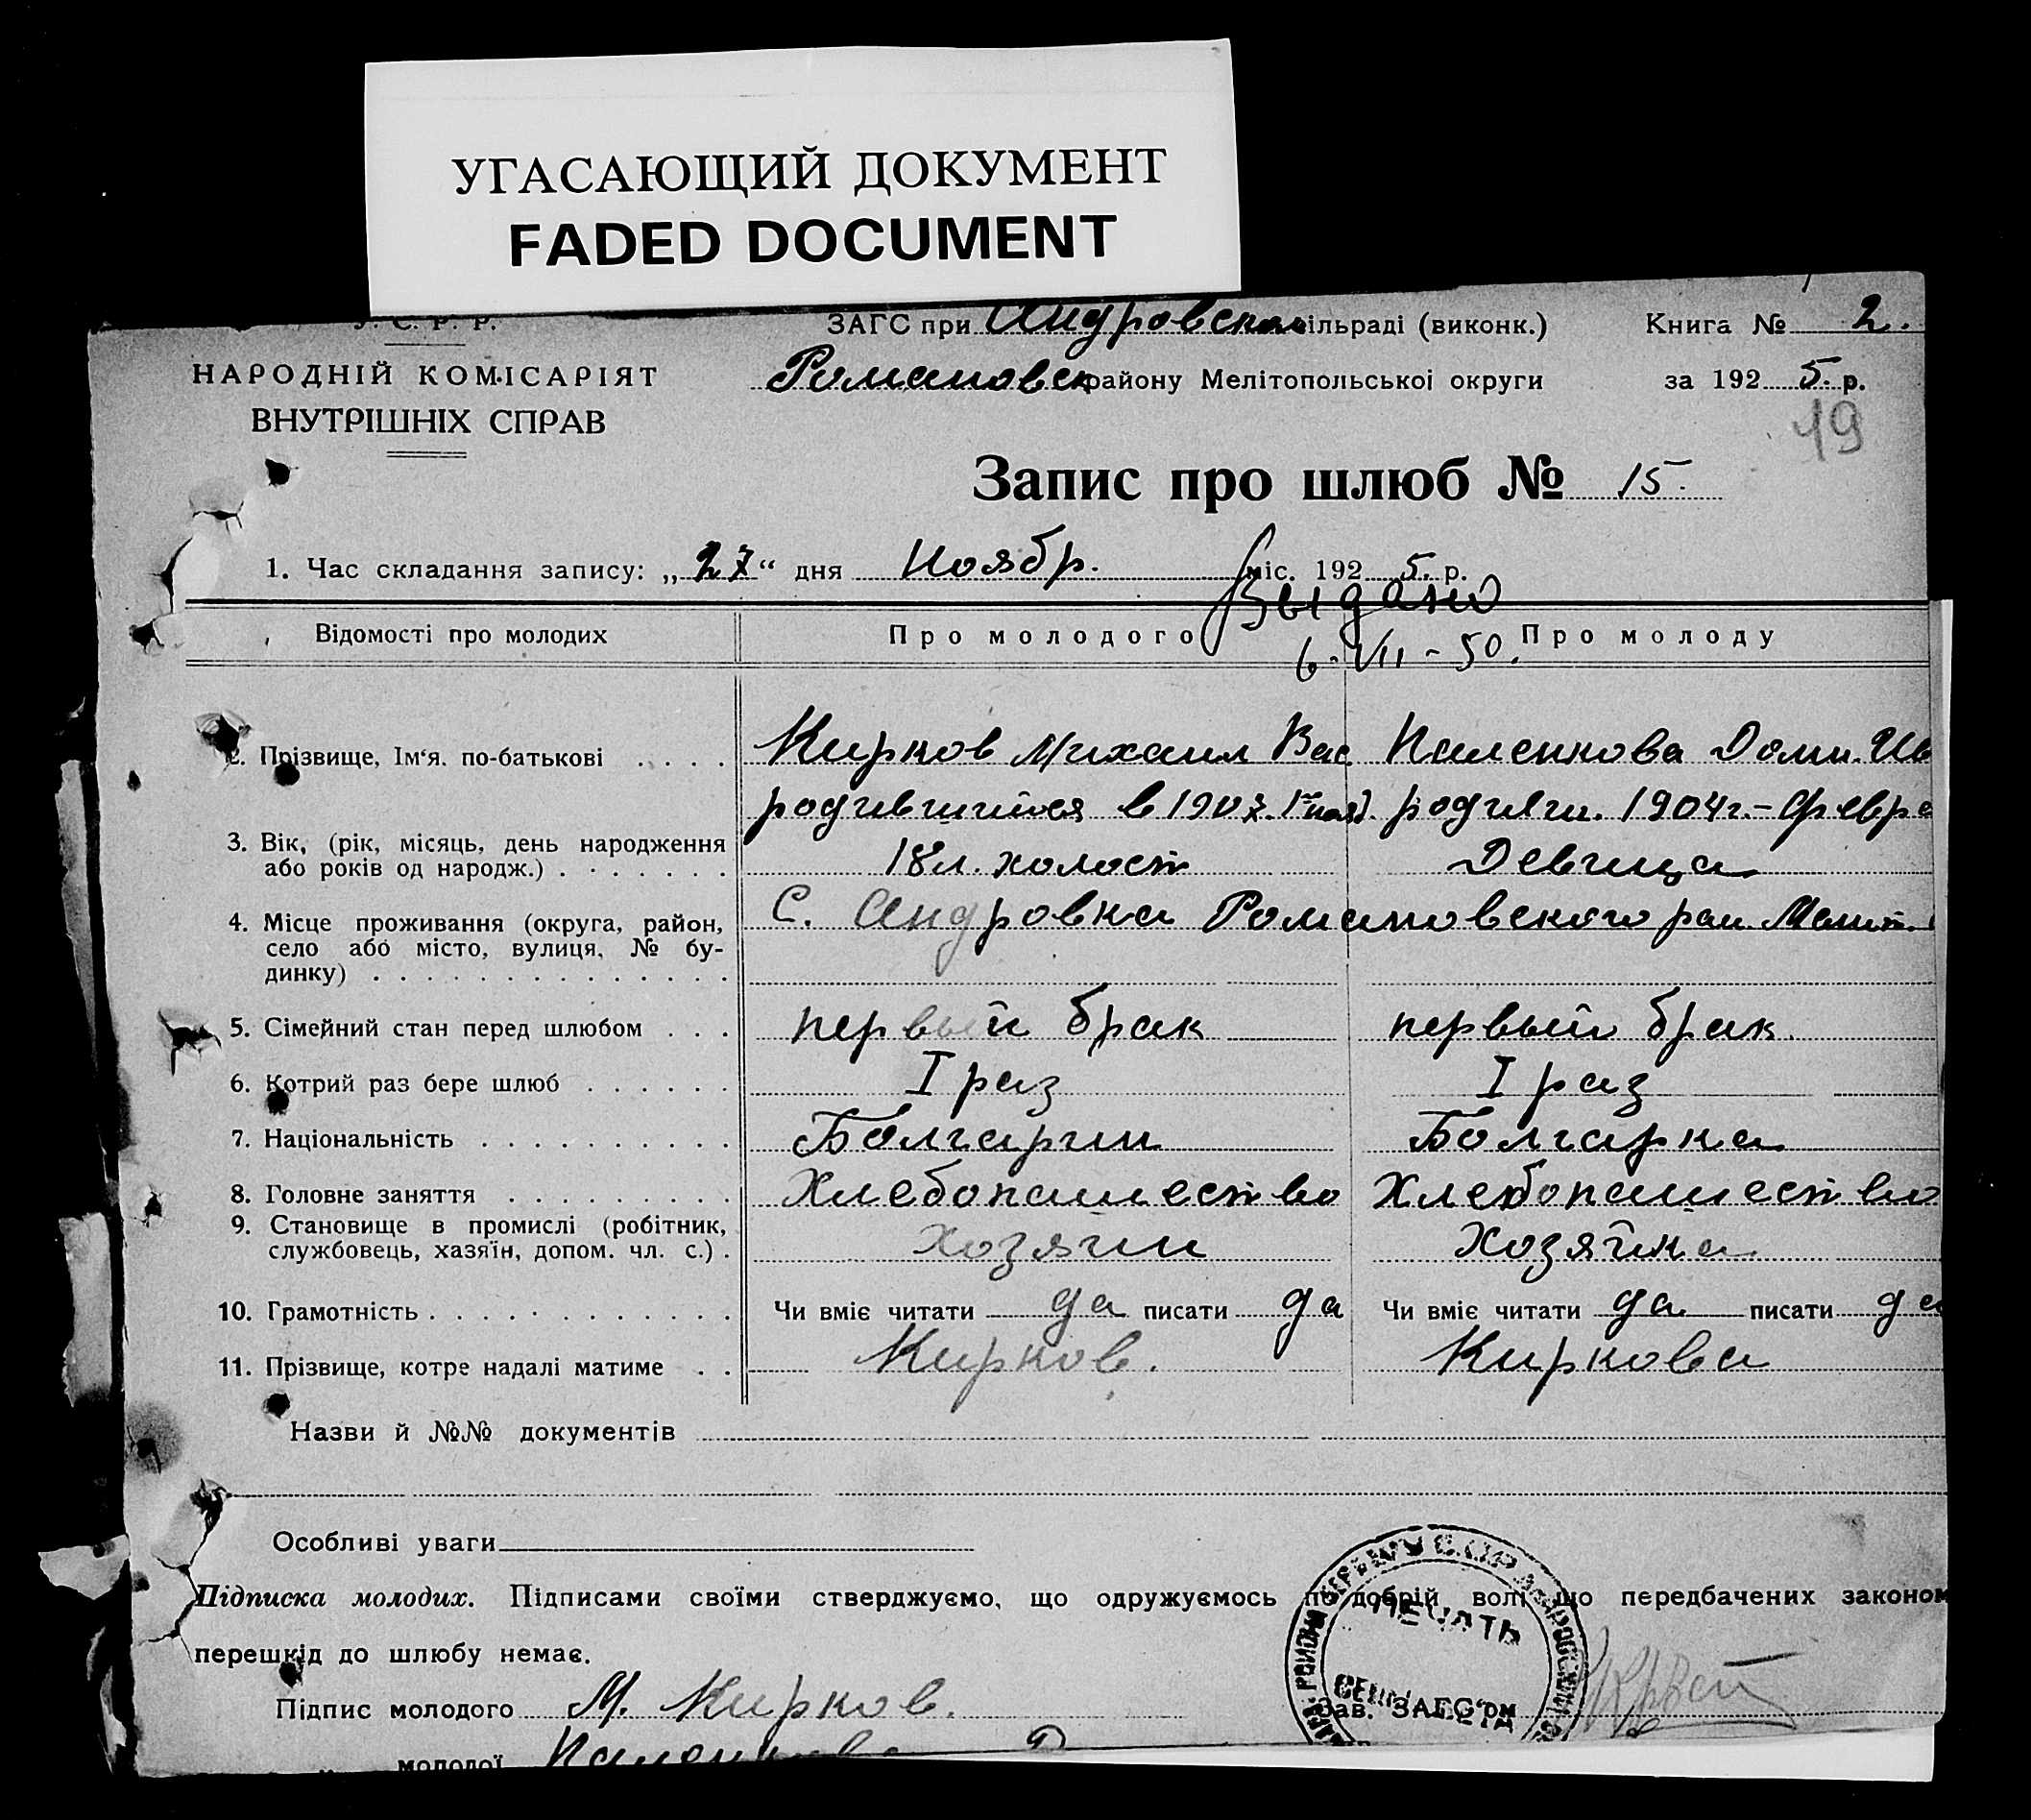 УГАСАЮЩИЙ ДОКУМЕНТ
FADED DOCUMENT
У. С. Р. Р.
НАРОДНІЙ КОМІСАРІЯТ
ВНУТРІШНІХ СПРАВ
ЗАГС при Андровском сільраді (виконк.)
Романовск району Мелітопольської округи
Книга № 2.
за 1925. р.
19
Запис про шлюб № 15.
1. Час складання запису: „27“ дня Ноябр. міс. 1925. р.
Выдано
6-VII-50.
Відомості про молодих Про молодого Про молоду
2. Прізвище, Ім‘я. по-батькові . . . . Кирков Михаил Вас Паленкова Домн. Ив
родившийся в 1907. 1го нояб. родилы. 1904г. - февра
3. Вік, (рік, місяць, день народження
або років од народж.) . . . . . . . 18 л. холост Девица
4. Місце проживання (округа, район, С. Андровка Романовского рай. Мелит.
село або місто, вулиця, № бу-
динку) . . . . . . . . . . . . . .
5. Сімейний стан перед шлюбом . . . первый брак первый брак.
6. Котрий раз бере шлюб . . . . . . I раз I раз
7. Національність . . . . . . . . . . Болгарин Болгарка
8. Головне заняття . . . . . . . . . Хлебопашество Хлебопашество
9. Становище в промислі (робітник,
службовець, хазяїн, допом. чл. с.) . Хозяин Хозяйка
10. Грамотність . . . . . . . . . . . . Чи вміє читати да писати да Чи вміє читати да писати да
11. Прізвище, котре надалі матиме . . Кирков. Киркова
Назви й №№ документів
Особливі уваги
Підписка молодих. Підписами своїми стверджуємо, що одружуємось по добрій волі що передбачених законом
перешкід до шлюбу немає.
ПЕЧАТЬ
Підпис молодого М. Кирков. Зав. ЗАГС‘ом
молодої Паленкова Д